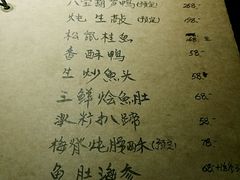 八宝葫芦鸭(预定) 268.-
炖生敲(预定) 158.-
松鼠桂鱼
香酥鸭 58.-
生炒鱼头 58.-
三鲜烩鱼肚 68.-
扒蹄 58.-
梅脊炖 (预定) 78.-
鱼肚海参 68.-